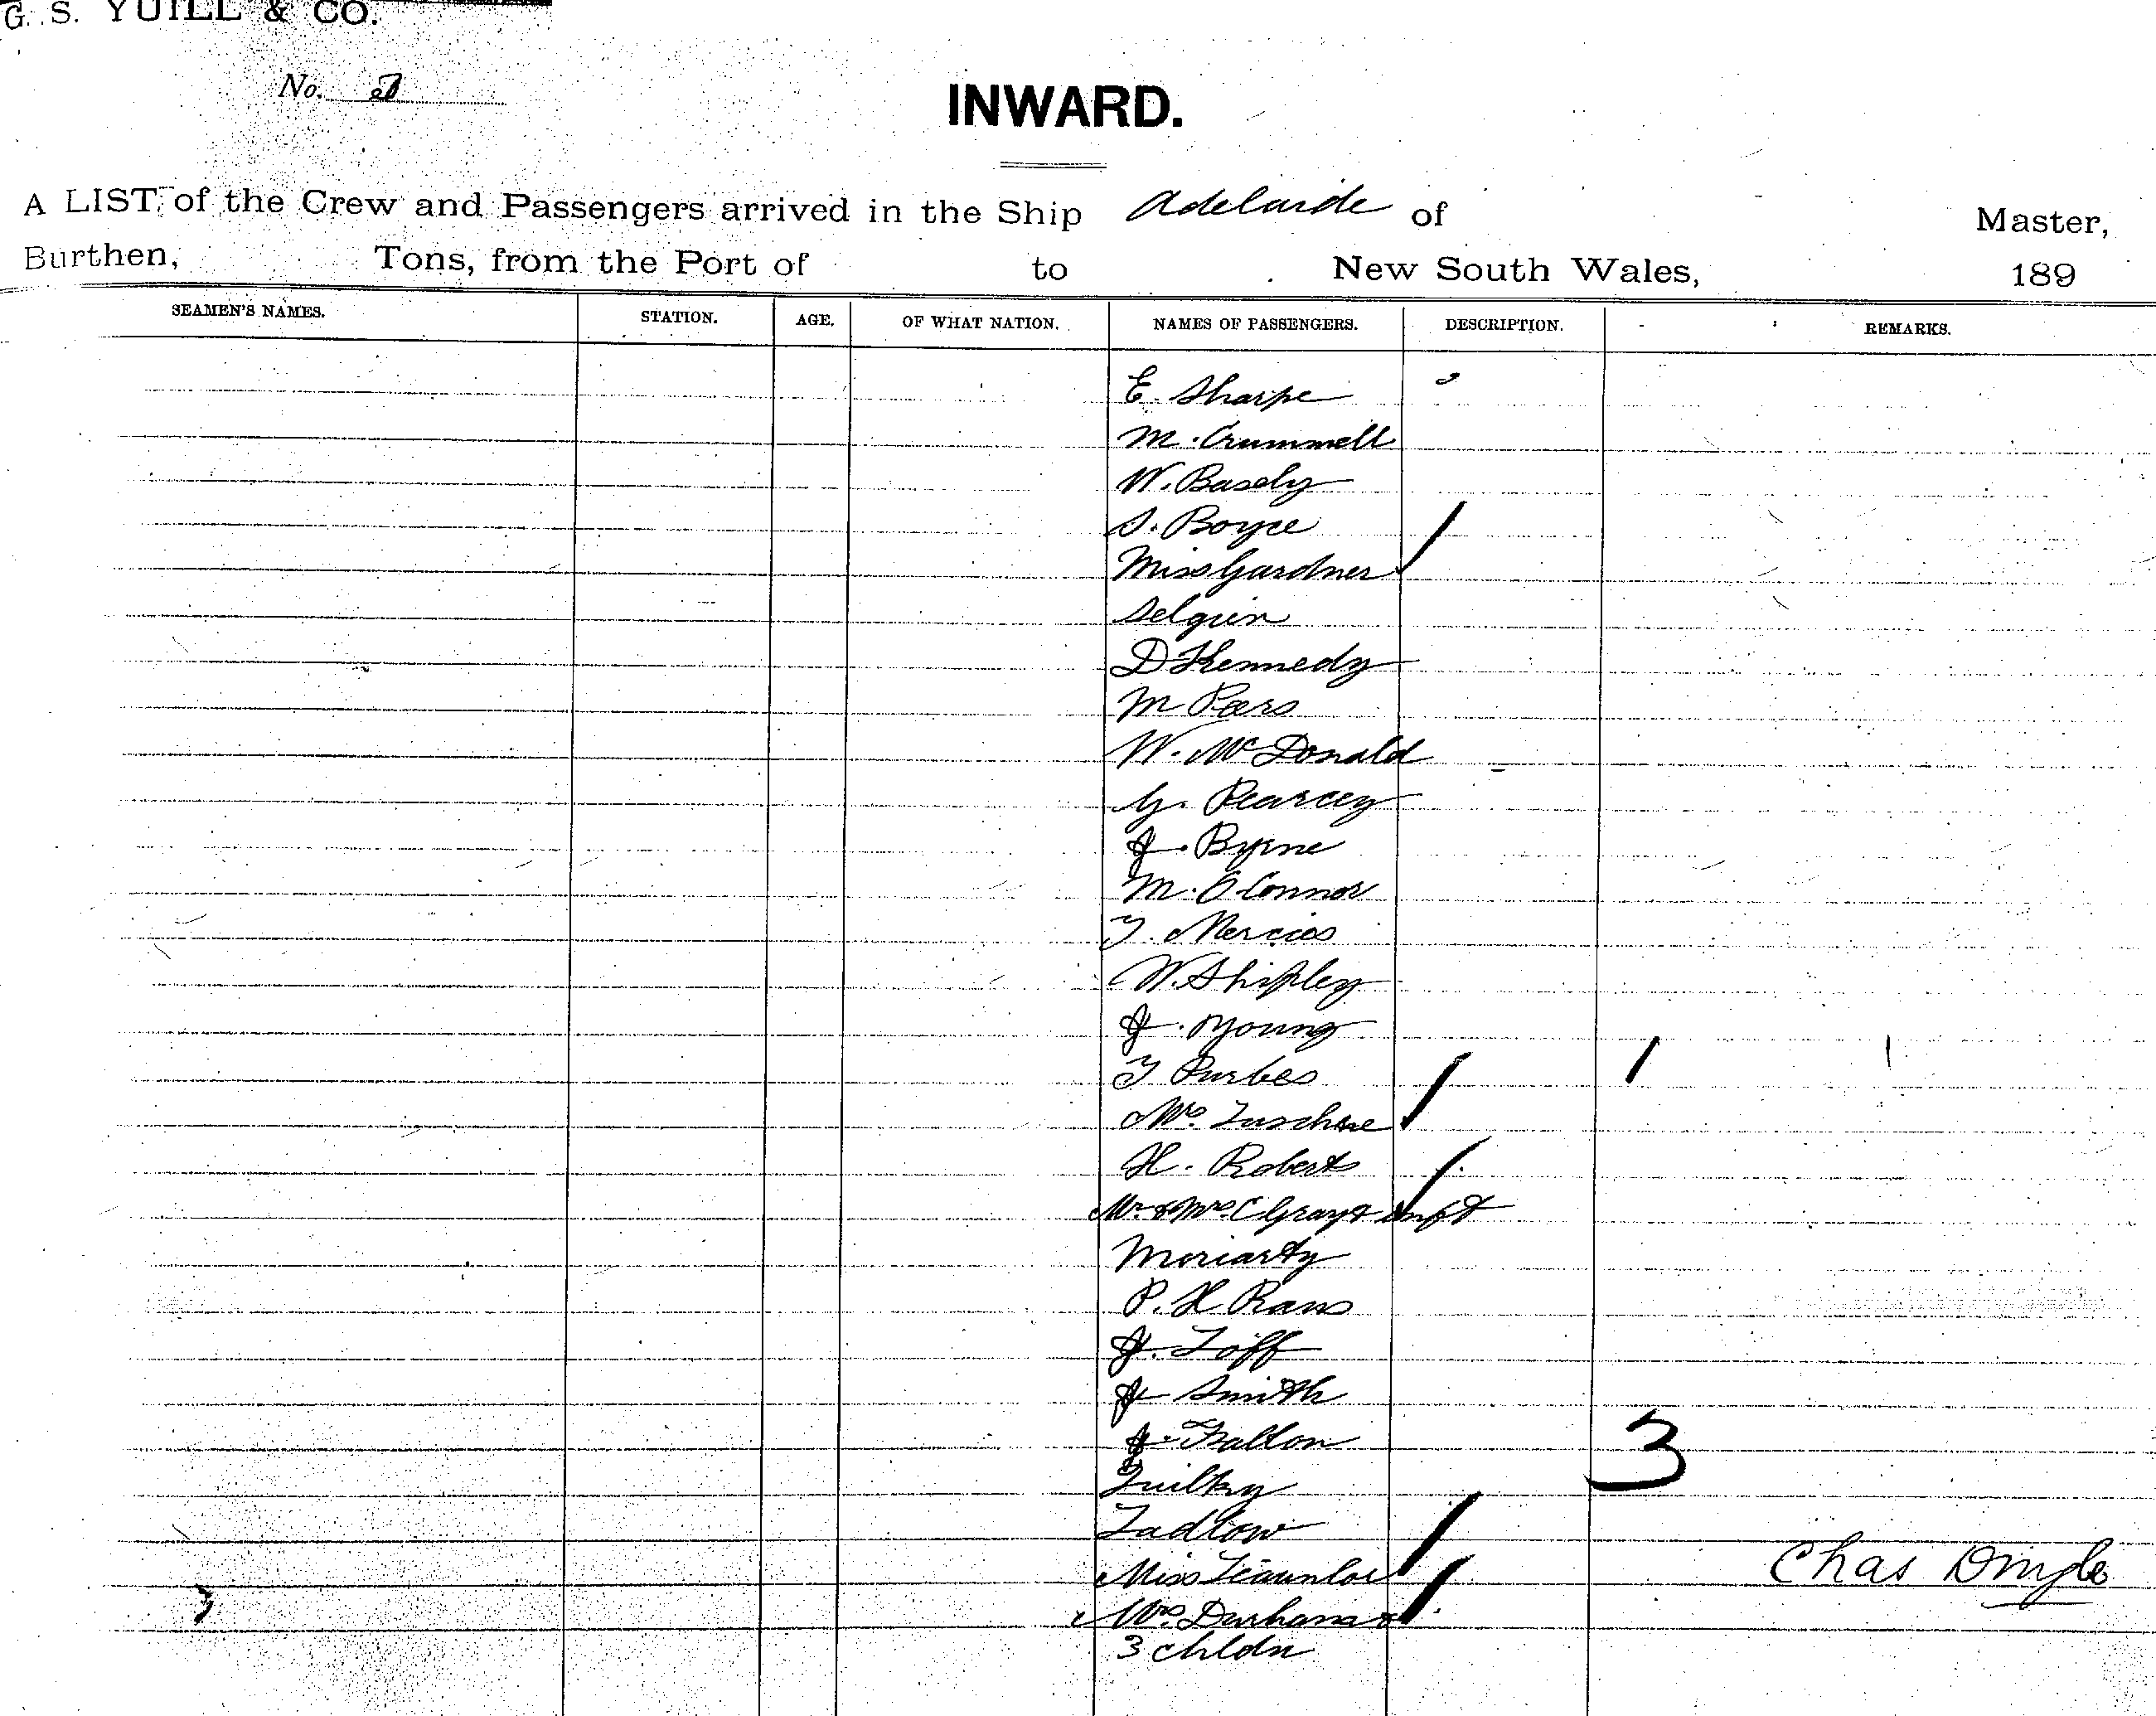 G. S. YUILL & CO.
No. 3
INWARD.
A LIST of the Crew and Passengers arrived in the Ship Adelaide of Master,
Burthen, Tons, from the Port of to New South Wales, 189
SEAMEN'S NAMES. STATION. AGE. OF WHAT NATION. NAMES OF PASSENGERS. DESCRIPTION. REMARKS.
E. Sharpe
M. Crummell
W. Basely
S. Boyce
Miss Gardner
Selguin
D Kennedy
M Peers
W. McDonald
G. Pearcey
J. Byrne
M. O'Connor
T. Mercies
W. Shipley
J. Young
T Purbes
Mrs.
H. Roberts
Mr. & Mrs. C Gray & Inft
Moriarty
P. H Rans
J. Toff
J Smith
J. Fallon
3
Tadlow
Chas Dingle
Miss
Mrs. Durham &
3 chldn